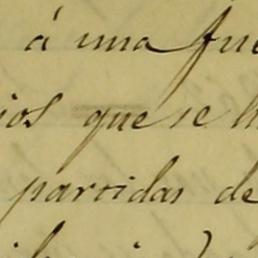 á una fue
ios que se h
partidas de